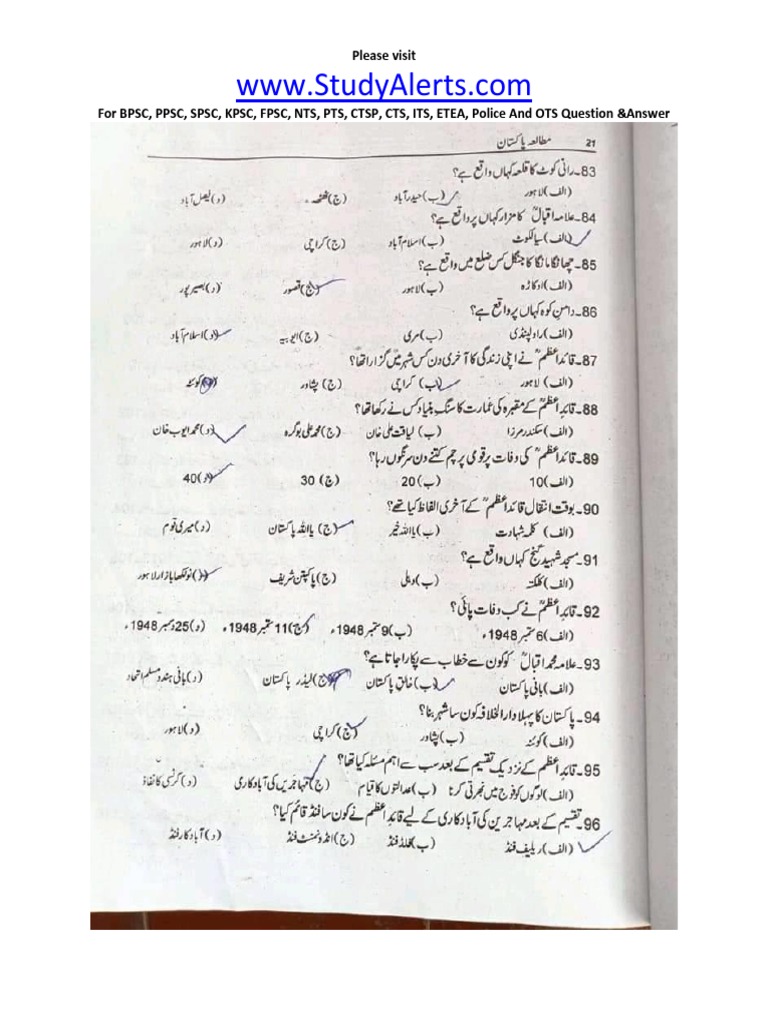 Please visit
www.StudyAlerts.com
For BPSC, PPSC, SPSC, KPSC, FPSC, NTS, PTS, CTSP, CTS, ITS, ETEA, Police And OTS Question &Answer
مطالعہ پاکستان 21
83۔رانی کوٹ کا قلعہ کہاں واقع ہے؟
(الف) لاہور (ب) حیدرآباد (ج) ٹھٹھہ (د) فیصل آباد
84۔علامہ اقبالؒ کا مزار کہاں پر واقع ہے؟
(الف) سیالکوٹ (ب) اسلام آباد (ج) کراچی (د) لاہور
85۔چھانگا مانگا کا جنگل کس ضلع میں واقع ہے؟
(الف) اوکاڑہ (ب) لاہور (ج) قصور (د) بصیر پور
86۔دامن کوہ کہاں پر واقع ہے؟
(الف) راولپنڈی (ب) مری (ج) ایوبیہ (د) اسلام آباد
87۔قائداعظمؒ نے اپنی زندگی کا آخری دن کس شہر میں گزارا تھا؟
(الف) لاہور (ب) کراچی (ج) پشاور (د) کوئٹہ
88۔قائداعظمؒ کے مقبرہ کی عمارت کا سنگ بنیاد کس نے رکھا تھا؟
(الف) سکندر مرزا (ب) لیاقت علی خان (ج) محمد علی بوگرہ (د) محمد ایوب خان
89۔قائداعظمؒ کی وفات پر قومی پرچم کتنے دن سرنگوں رہا؟
(الف) 10 (ب) 20 (ج) 30 (د) 40
90۔بوقت انتقال قائداعظمؒ کے آخری الفاظ کیا تھے؟
(الف) کلمہ شہادت (ب) یا اللہ خیر (ج) یا اللہ پاکستان (د) میری قوم
91۔مسجد شہید گنج کہاں واقع ہے؟
(الف) کلکتہ (ب) دہلی (ج) پاکپتن شریف (د) نولکھا بازار لاہور
92۔قائداعظمؒ نے کب وفات پائی؟
(الف) 6 ستمبر 1948ء (ب) 9 ستمبر 1948ء (ج) 11 ستمبر 1948ء (د) 25 دسمبر 1948ء
93۔علامہ محمد اقبالؒ کو کون سے خطاب سے پکارا جاتا ہے؟
(الف) بانی پاکستان (ب) خالق پاکستان (ج) لیڈر پاکستان (د) بانی ہندو مسلم اتحاد
94۔پاکستان کا پہلا دارالخلافہ کون سا شہر بنا؟
(الف) کوئٹہ (ب) پشاور (ج) کراچی (د) لاہور
95۔قائداعظمؒ کے نزدیک تقسیم کے بعد سب سے اہم مسئلہ کیا تھا؟
(الف) لوگوں کو فوج میں بھرتی کرنا (ب) عدالتوں کا قیام (ج) مہاجرین کی آبادکاری (د) کرنسی کا نفاذ
96۔تقسیم کے بعد مہاجرین کی آبادکاری کے لیے قائداعظمؒ نے کون سا فنڈ قائم کیا؟
(الف) ریلیف فنڈ (ب) فلڈ فنڈ (ج) انڈومنٹ فنڈ (د) آبادکار فنڈ